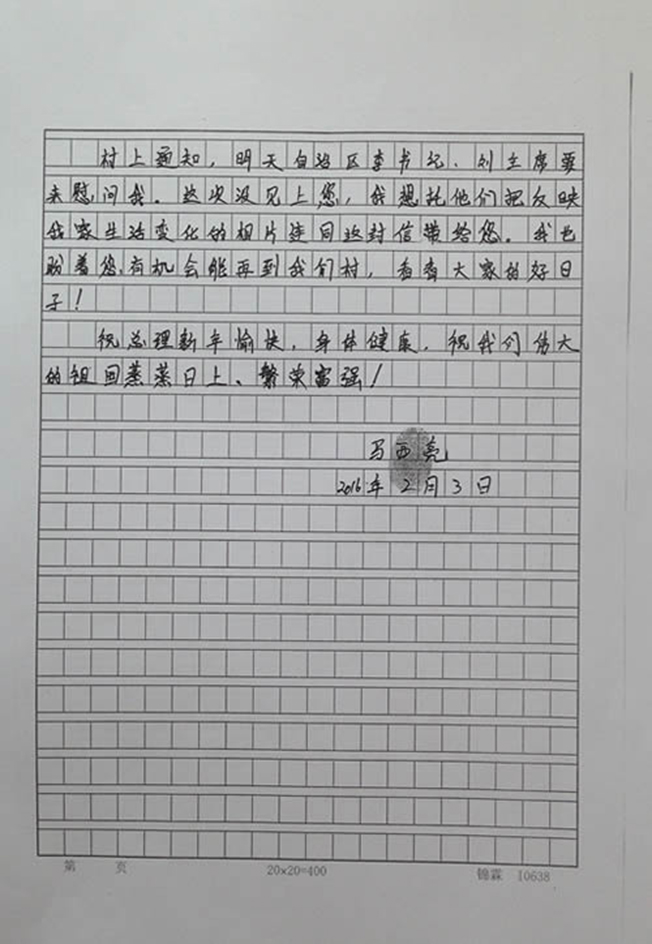 村上通知，明天自治区李书记、刘主席要
来慰问我。这次没见上您，我想托他们把反映
我家生活变化的相片连同这封信带给您。我也
盼着您有机会能再到我们村，看看大家的好日
子！
祝总理新年愉快，身体健康，祝我们伟大
的祖国蒸蒸日上、繁荣富强！
马西亮
2016年2月3日
第 页 20×20=400 锦霖 I0638